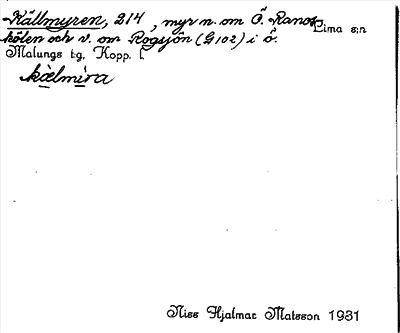 Källmyren, 214, myr n. om Ö. Ranos- Lima s:n
kölen och v. om Rogsjön (G102) i ö.
Malungs tg, Kopp. l.
kælmira
Niss Hjalmar Matsson 1931